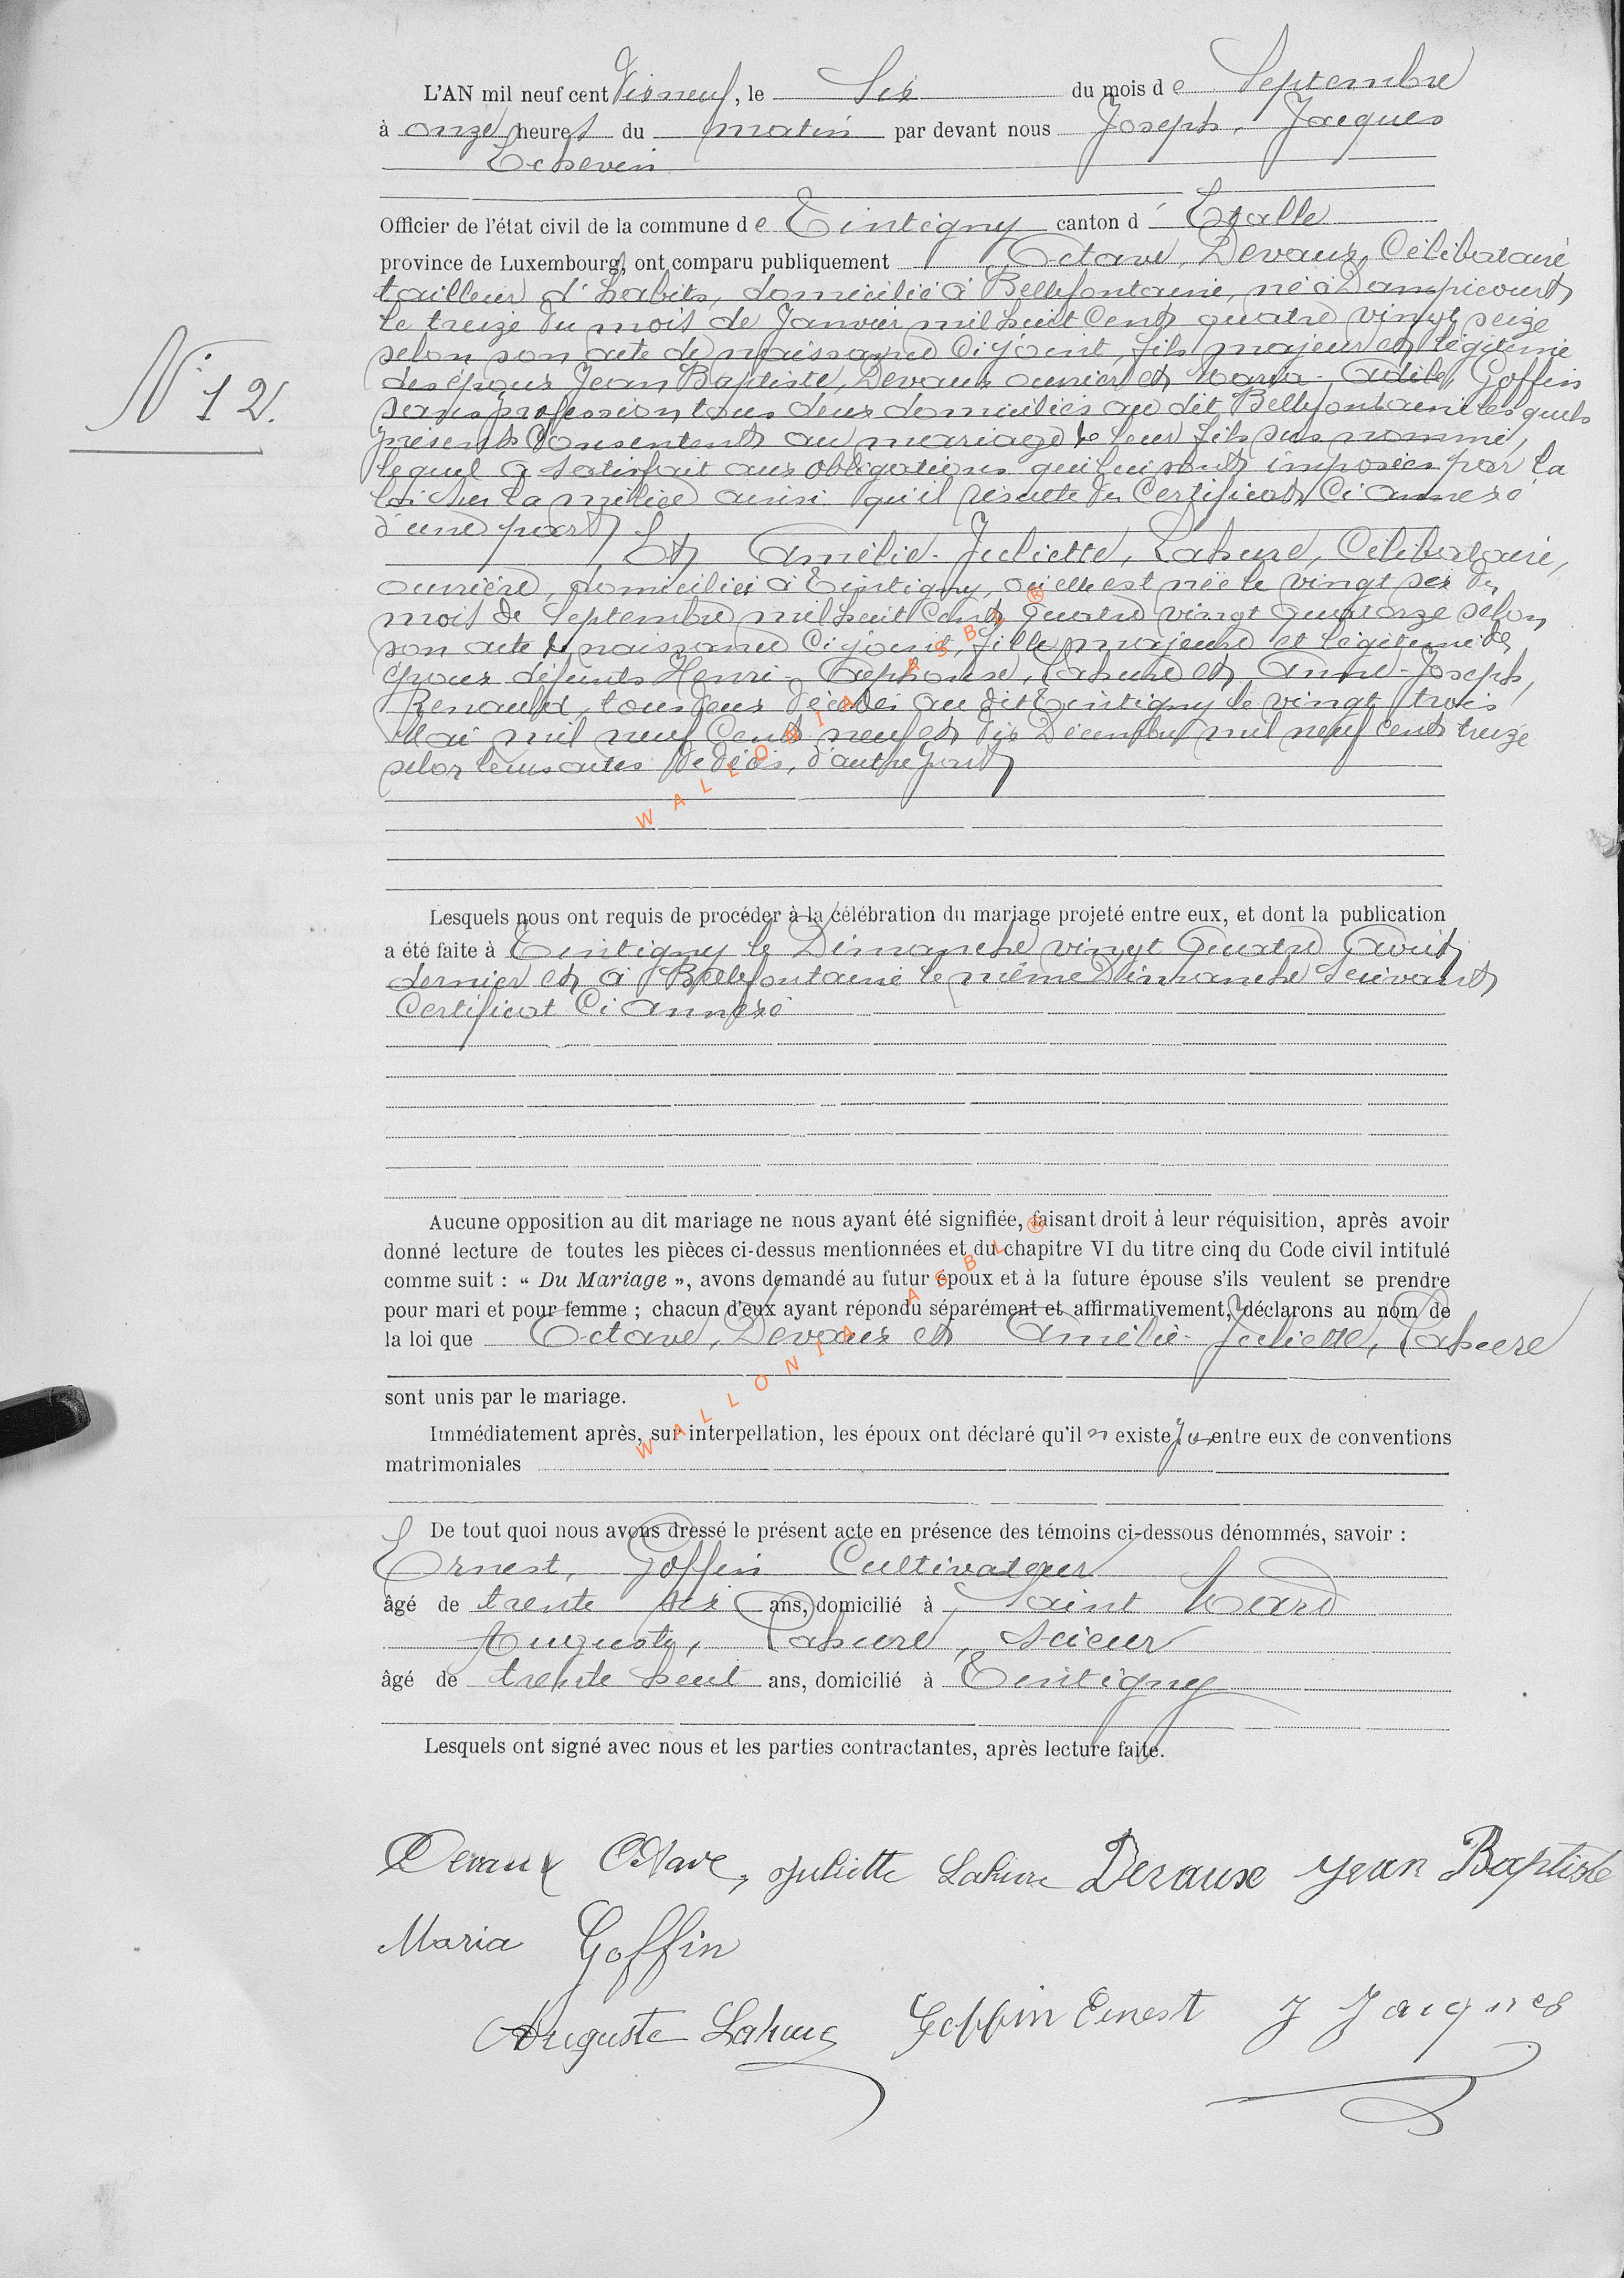 L'AN mil neuf cent Dix neuf, le Six du mois de Septembre
à onze heures du matin par devant nous Joseph, Jacques
Echevin
Officier de l'état civil de la commune de Tintigny canton d'Etalle
province de Luxembourg, ont comparu publiquement Octave, Devaux, Célibataire
tailleur d'habits, domicilié à Bellefontaine, né à Dampicourt
le treize du mois de Janvier mil huit Cent quatre vingt seize
selon son acte de naissance Ci joint, fils majeur et légitime
des époux Jean Baptiste, Devaux ouvrier et Maria-Adile, Goffin
sans profession, tous deux domiciliés au dit Bellefontaine les quels
présents Consentent au mariage de leur fils sus nommé,
lequel a satisfait aux obligations qui lui sont imposées par la
loi sur la milice ainsi qu'il résulte du Certificat Ci annexé
d'une part, Et Amélie-Juliette, Lahure, Célibataire,
ouvrière, domiciliée à Tintigny, où elle est née le vingt six du
mois de Septembre mil huit Cent quatre vingt quatorze selon
son acte de naissance Ci joint, fille majeure et légitime des
époux défunts Henri-Alphonse, Lahure et Anne-Joseph,
Renauld, tous deux décédés au dit Tintigny le vingt trois
Mai mil neuf Cent neuf et dix Décembre mil neuf cent treize
selon leurs actes de décès, d'autre part
Lesquels nous ont requis de procéder à la célébration du mariage projeté entre eux, et dont la publication
a été faite à Tintigny le Dimanche vingt Quatre Août
dernier et à Bellefontaine le même Dimanche Suivant
Certificat Ci Annexé
Aucune opposition au dit mariage ne nous ayant été signifiée, faisant droit à leur réquisition, après avoir
donné lecture de toutes les pièces ci-dessus mentionnées et du chapitre VI du titre cinq du Code civil intitulé
comme suit : « Du Mariage », avons demandé au futur époux et à la future épouse s'ils veulent se prendre
pour mari et pour femme ; chacun d'eux ayant répondu séparément et affirmativement, déclarons au nom de
la loi que Octave, Devaux et Amélie-Juliette, Lahure
sont unis par le mariage.
Immédiatement après, sur interpellation, les époux ont déclaré qu'il n existe pas entre eux de conventions
matrimoniales
De tout quoi nous avons dressé le présent acte en présence des témoins ci-dessous dénommés, savoir :
Ernest, Goffin Cultivateur
âgé de trente six ans, domicilié à Saint Mard
Auguste, Lahure, scieur
âgé de trente huit ans, domicilié à Tintigny
Lesquels ont signé avec nous et les parties contractantes, après lecture faite.
Devaux Octave, Juliette Lahure Devaux Jean Baptiste
Maria Goffin
Auguste Lahure Goffin Ernest J Jacques
N° 12.
WALLONIA ASBL ®
WALLONIA ASBL ®